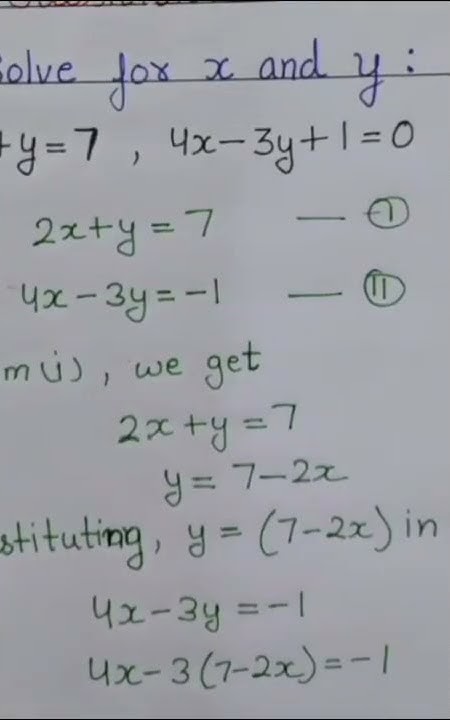 olve for x and y :
+y=7 , 4x-3y+1=0
2x+y=7 — (I)
4x-3y=-1 — (II)
m (i), we get
2x+y=7
y=7-2x
stituting, y=(7-2x) in
4x-3y=-1
4x-3(7-2x)=-1